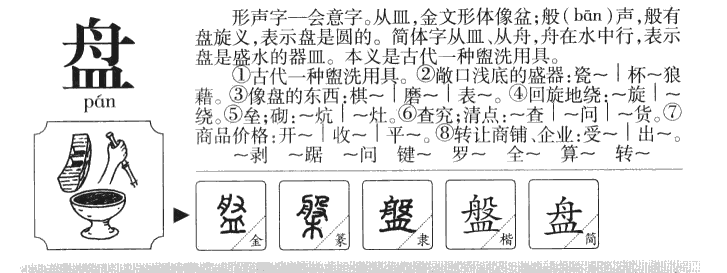 盘
pán
形声字—会意字。从皿,金文形体像盆;般(bān)声,般有
盘旋义,表示盘是圆的。简体字从皿、从舟,舟在水中行,表示
盘是盛水的器皿。本义是古代一种盥洗用具。
①古代一种盥洗用具。②敞口浅底的盛器:瓷~|杯~狼
藉。③像盘的东西:棋~|磨~|表~。④回旋地绕:~旋|~
绕。⑤垒;砌:~炕|~灶。⑥查究;清点:~查|~问|~货。⑦
商品价格:开~|收~|平~。⑧转让商铺、企业:受~|出~。
~剥 ~踞 ~问 键~ 罗~ 全~ 算~ 转~
金 篆 盤隶 盤楷 盘简